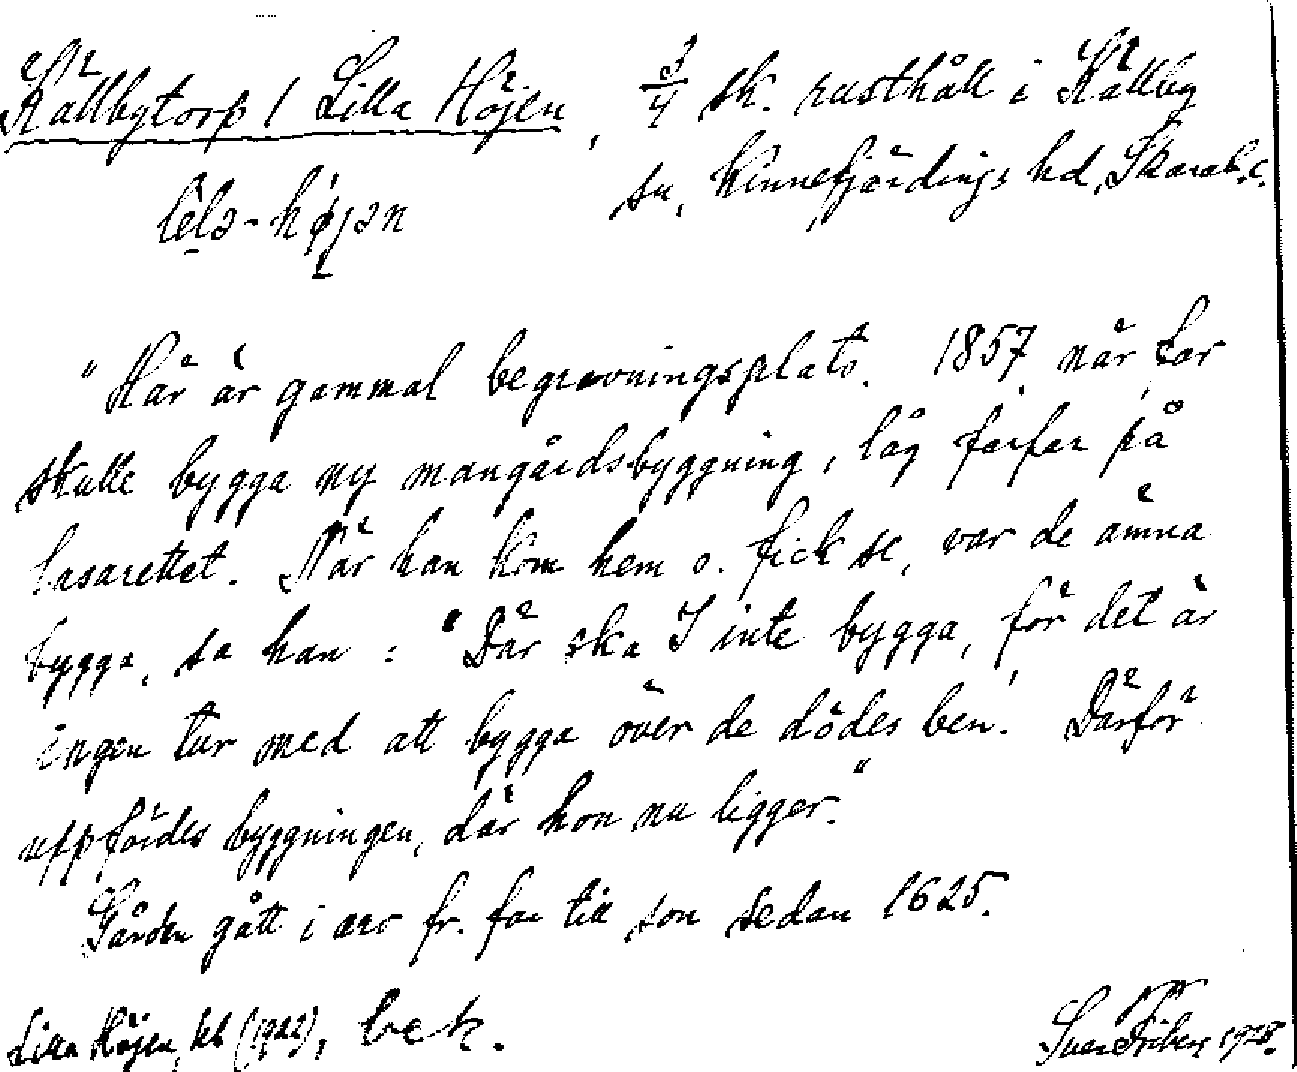 Källbytorp 1 Lilla Höjen, 3/4 sk. rusthåll i Källby
sn, Kinnefjärdings hd, Skarab. l.
lela-højən
"Här är gammal begravningsplats. 1857, när far
skulle bygga ny mangårdsbyggning, låg farfar på
lasarettet. När han kom hem o. fick se, var de ämna
bygga, sa han: "Där ska I inte bygga, för det är
ingen tur med att bygga över de dödes ben! Därför
uppfördes byggningen, där hon nu ligger."
Gården gått i arv fr. far till son sedan 1625.
Lilla Höjen, kb (1922), bek.
Sven Friberg 1928.